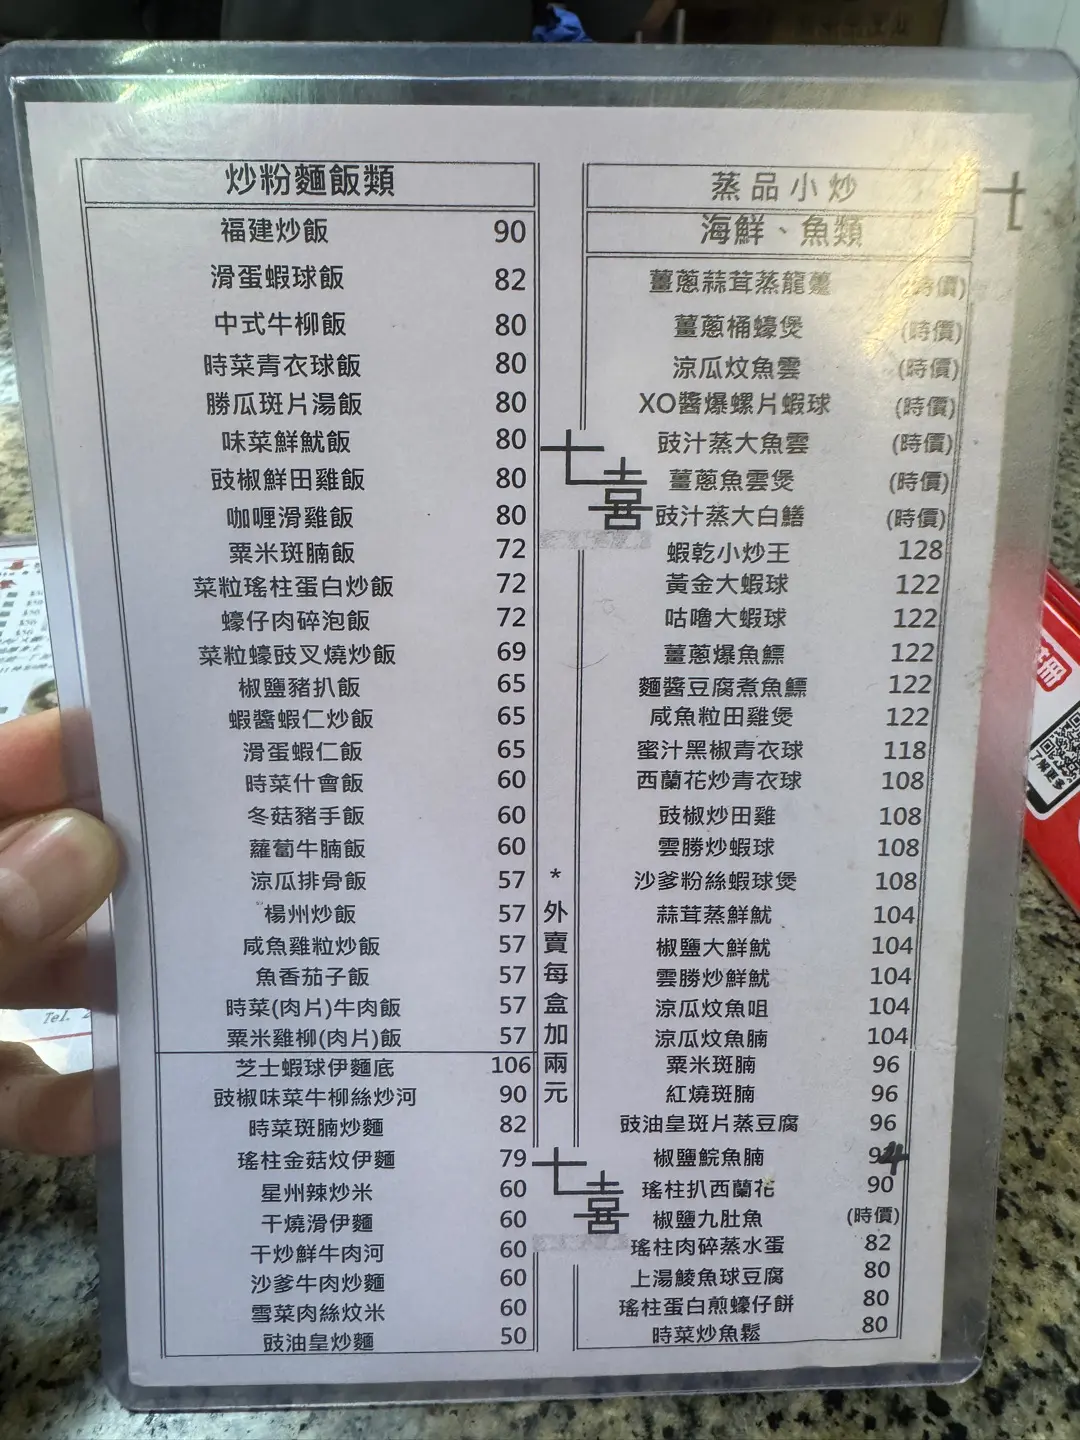 炒粉麵飯類
福建炒飯 90
滑蛋蝦球飯 82
中式牛柳飯 80
時菜青衣球飯 80
勝瓜斑片湯飯 80
味菜鮮魷飯 80
豉椒鮮田雞飯 80
咖喱滑雞飯 80
粟米斑腩飯 72
菜粒瑤柱蛋白炒飯 72
蠔仔肉碎泡飯 72
菜粒蠔豉叉燒炒飯 69
椒鹽豬扒飯 65
蝦醬蝦仁炒飯 65
滑蛋蝦仁飯 65
時菜什會飯 60
冬菇豬手飯 60
蘿蔔牛腩飯 60
涼瓜排骨飯 57
楊州炒飯 57
咸魚雞粒炒飯 57
魚香茄子飯 57
時菜(肉片)牛肉飯 57
粟米雞柳(肉片)飯 57
芝士蝦球伊麵底 106
豉椒味菜牛柳絲炒河 90
時菜斑腩炒麵 82
瑤柱金菇炆伊麵 79
星州辣炒米 60
干燒滑伊麵 60
干炒鮮牛肉河 60
沙爹牛肉炒麵 60
雪菜肉絲炆米 60
豉油皇炒麵 50
七喜
*外賣每盒加兩元
七喜
蒸品小炒
海鮮、魚類
薑蔥蒜茸蒸龍躉 (時價)
薑蔥桶蠔煲 (時價)
涼瓜炆魚雲 (時價)
XO醬爆螺片蝦球 (時價)
豉汁蒸大魚雲 (時價)
薑蔥魚雲煲 (時價)
豉汁蒸大白鱔 (時價)
蝦乾小炒王 128
黃金大蝦球 122
咕嚕大蝦球 122
薑蔥爆魚鰾 122
麵醬豆腐煮魚鰾 122
咸魚粒田雞煲 122
蜜汁黑椒青衣球 118
西蘭花炒青衣球 108
豉椒炒田雞 108
雲勝炒蝦球 108
沙爹粉絲蝦球煲 108
蒜茸蒸鮮魷 104
椒鹽大鮮魷 104
雲勝炒鮮魷 104
涼瓜炆魚咀 104
涼瓜炆魚腩 104
粟米斑腩 96
紅燒斑腩 96
豉油皇斑片蒸豆腐 96
椒鹽鯇魚腩 94
瑤柱扒西蘭花 90
椒鹽九肚魚 (時價)
瑤柱肉碎蒸水蛋 82
上湯鯪魚球豆腐 80
瑤柱蛋白煎蠔仔餅 80
時菜炒魚鬆 80
七
Tel.